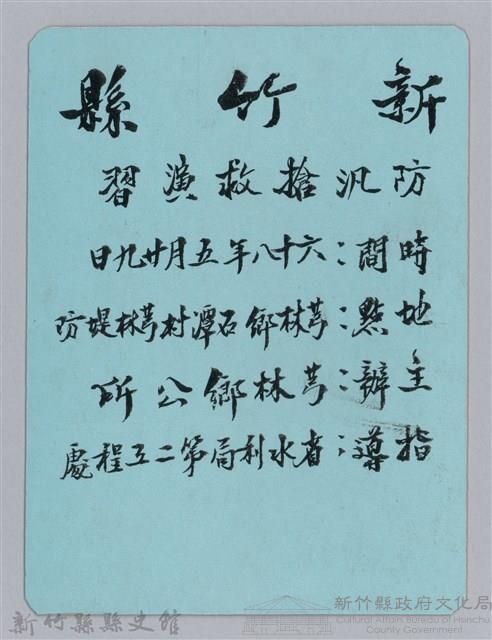 新竹縣
防汛搶救演習
時間：六十八年五月廿九日
地點：芎林鄉石潭村芎林堤防
主辦：芎林鄉公所
指導：省水利局第二工程處
新竹縣縣史館
新竹縣政府文化局
Cultural Affairs Bureau of Hsinchu
County Government